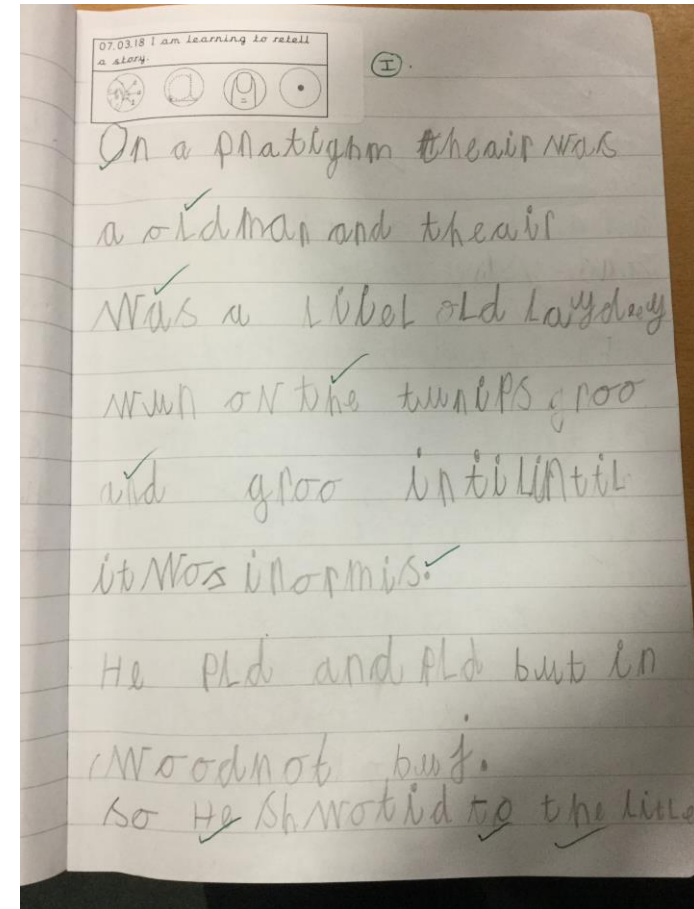 07.03.18 I am learning to retell
a story.
I.
On a pnatighm theair was
a old man and theair
was a litel old laydey
wun on the tunips groo
and groo intilintil
it wos inormis.
He pld and pld but in
woodnot buj.
so He shwotid to the little